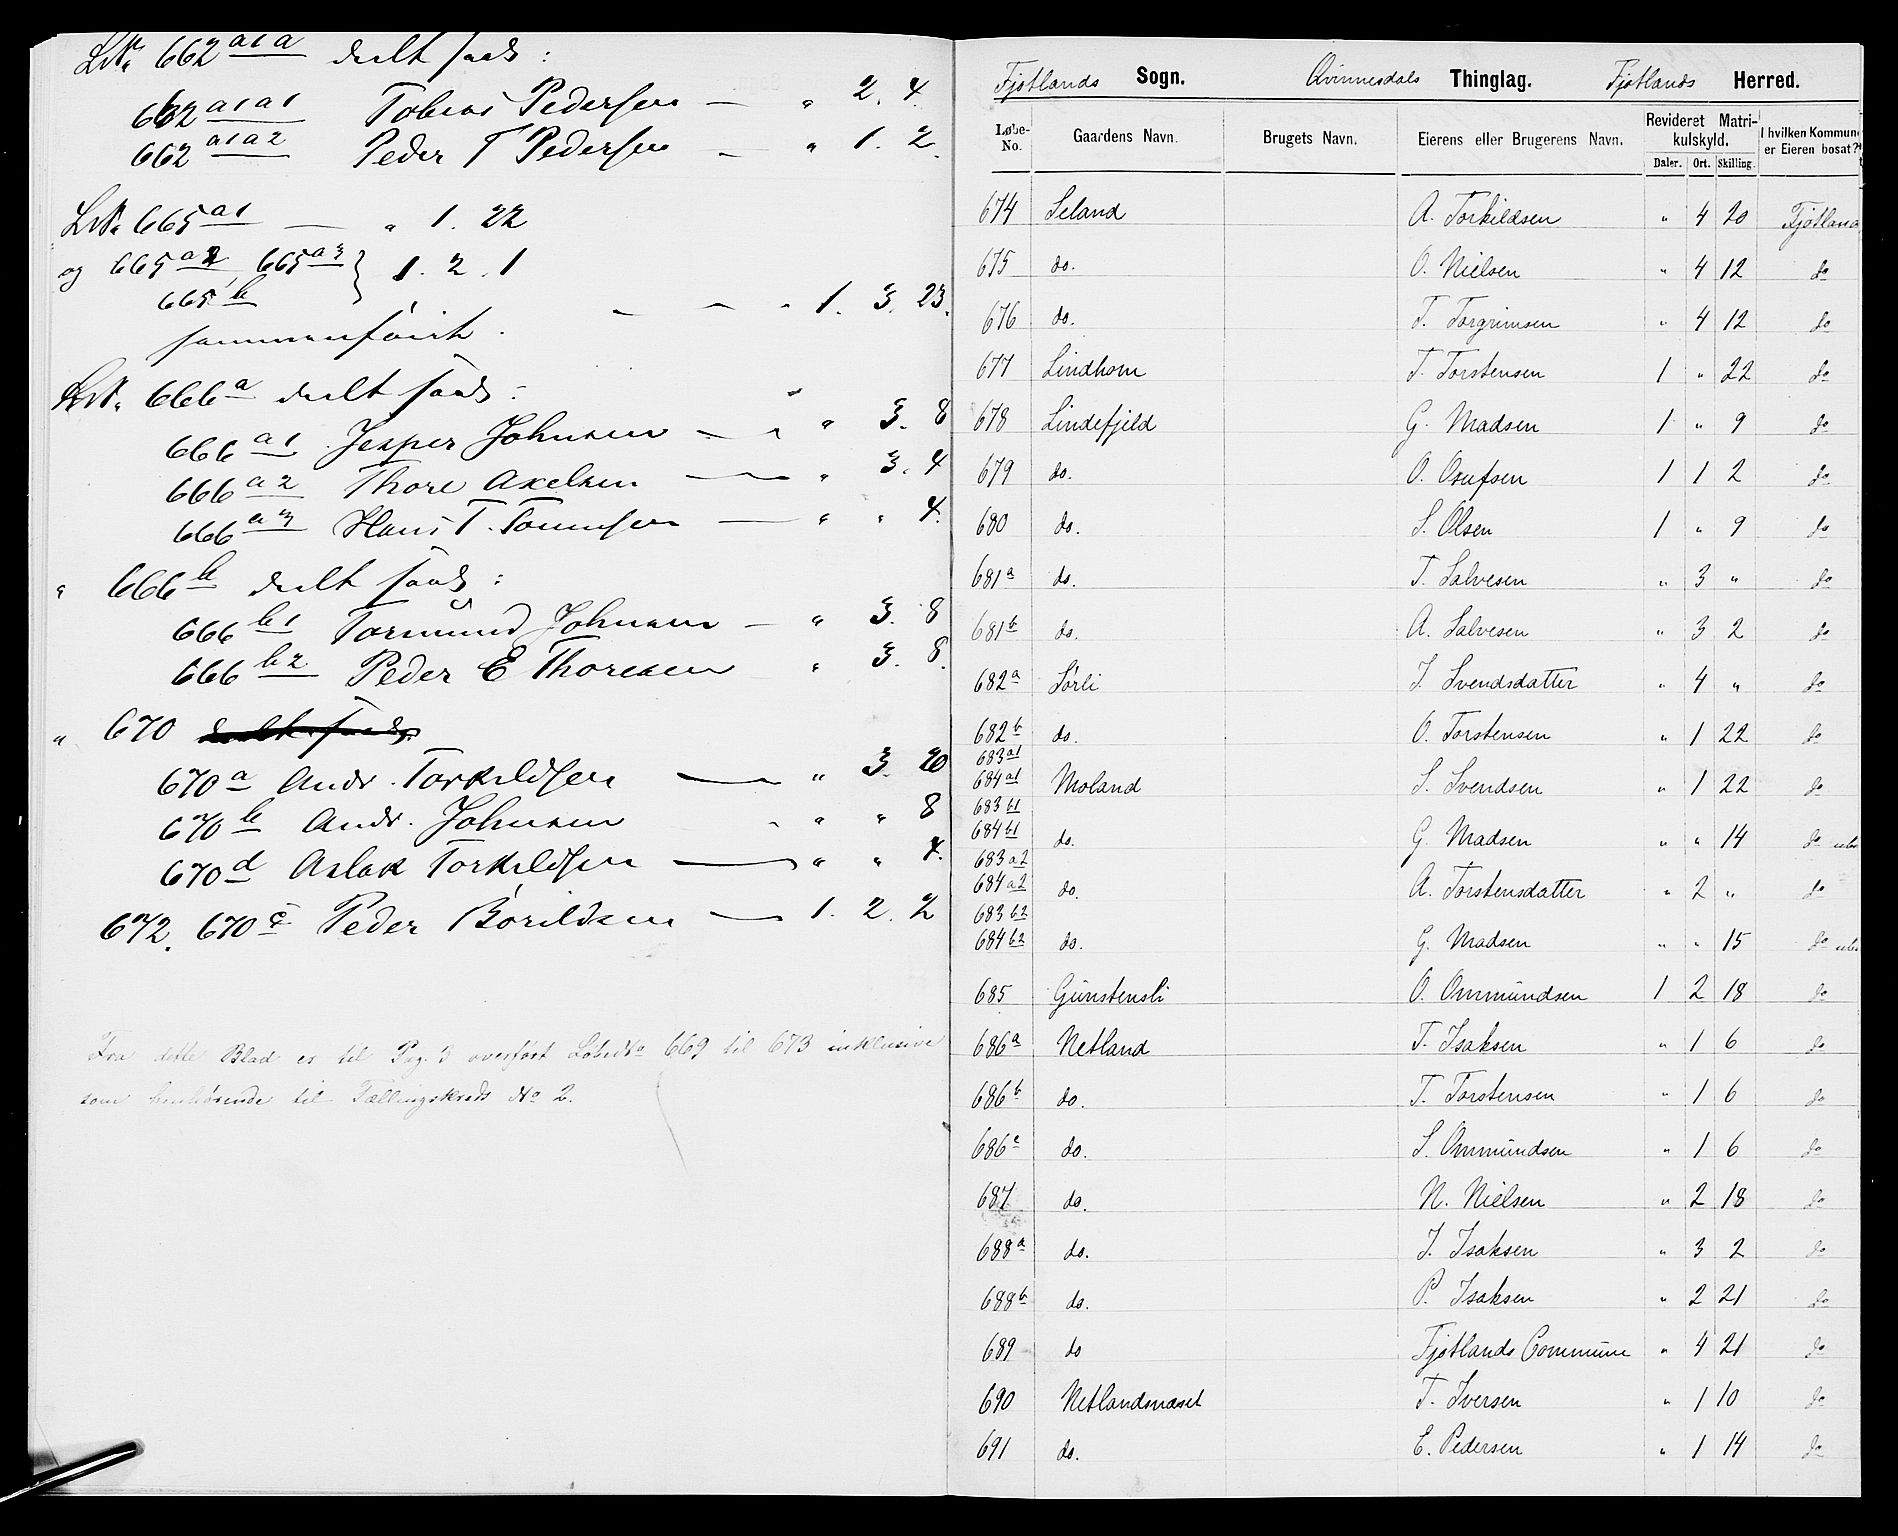 LNr. 662 a1a delt saal:
662 a1a1 Tobias Pedersen — " 2. 4.
662 a1a2 Peder T Pedersen — " 1. 2.
LNr. 665 a1 — " 1. 22
og 665 a2, 665 a3 } 1. 2. 1
665 b — — " 1. 3. 23.
sammenføiet.
LNr. 666 a delt saal:
666 a1 Jesper Johnsen — " 3. 8
666 a2 Thore Axelsen — " 3. 4
666 a3 Hans T. Tønnesen — " " 4.
" 666 b delt saal:
666 b1 Tormund Johnsen — " 3. 8
666 b2 Peder E Thoresen " 3. 8.
" 670
670 a Andr. Torkildsen — " 3. 20
670 b Andr. Johnsen " " 8
670 d Aslak Torkildsen — " " 4.
672. 670 c Peder Børildsen — 1. 2. 2
Fra dette Blad er til Pag. 3 overført LøbeNo 669 til 673 inklusive
som henhørende til Tællingskreds No 2.
Fjotlands Sogn. Qvinnesdals Thinglag. Fjotlands Herred.
Løbe-No. Gaardens Navn. Brugets Navn. Eierens eller Brugerens Navn. Revideret Matrikulskyld. I hvilken Kommune er Eieren bosat?
Daler. Ort. Skilling.
674 Seland A. Torkildsen " 4 20 Fjotland
675 do. O. Nielsen " 4 12 do
676 do. T. Torgrimsen " 4 12 do
677 Lindhom T. Torstensen 1 " 22 do
678 Lindefjeld G. Madsen 1 " 9 do
679 do. O. Osufsen 1 1 2 do
680 do. S. Olsen 1 " 9 do
681 a do. T. Salvesen " 3 " do
681 b do. A. Salvesen " 3 2 do
682 a Sørli J. Svendsdatter " 4 " do
682 b do. O. Torstensen " 1 22 do
683 a1
684 a1 Moland S. Svendsen " 1 22 do
683 b1
684 b1 do. G. Madsen " " 14 do
683 a2
684 a2 do. A. Torstensdatter " 2 " do
683 b2
684 b2 do. G. Madsen " " 15 do
685 Gunstensli O. Ommundsen 1 2 18 do
686 a Netland T. Isaksen " 1 6 do
686 b do. T. Torstensen " 1 6 do
686 c do. S. Ommundsen " 1 6 do
687 do. N. Nielsen " 2 18 do
688 a do. J. Isaksen " 3 2 do
688 b do. P. Isaksen " 2 21 do
689 do Fjotlands Commune " 4 21 do
690 Netlandsnæset T. Iversen " 1 10 do
691 do. E. Pedersen " 1 14 do